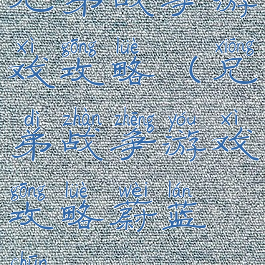 兄弟战争游
xì gōng lüè xiōng
戏攻略（兄
dì zhàn zhēng yóu xì
弟战争游戏
gōng lüè wèi lán
攻略蔚蓝